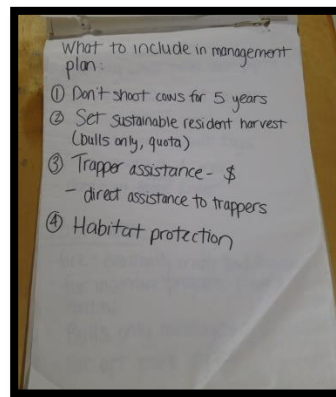 What to include in management
plan:
① Don't shoot cows for 5 years
② Set sustainable resident harvest
(bulls only, quota)
③ Trapper assistance - $
- direct assistance to trappers
④ Habitat protection